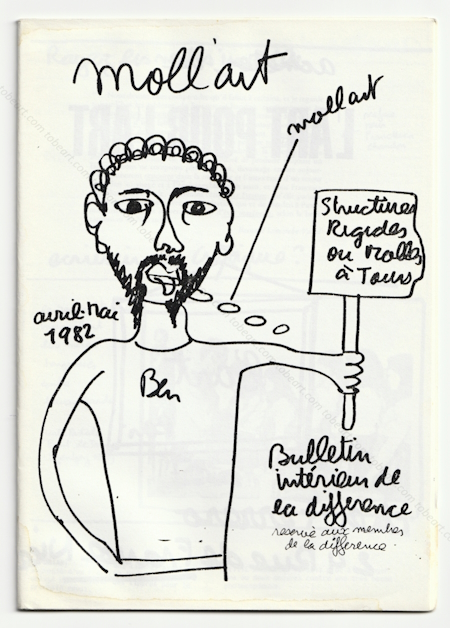 Moll'art
mollart
Structures
Rigides
ou Molles
à Tours
avril-Mai
1982
Ben
Bulletin
intérieur de
la différence
reservé aux membres
de la différence.
L'ART POUR L'ART